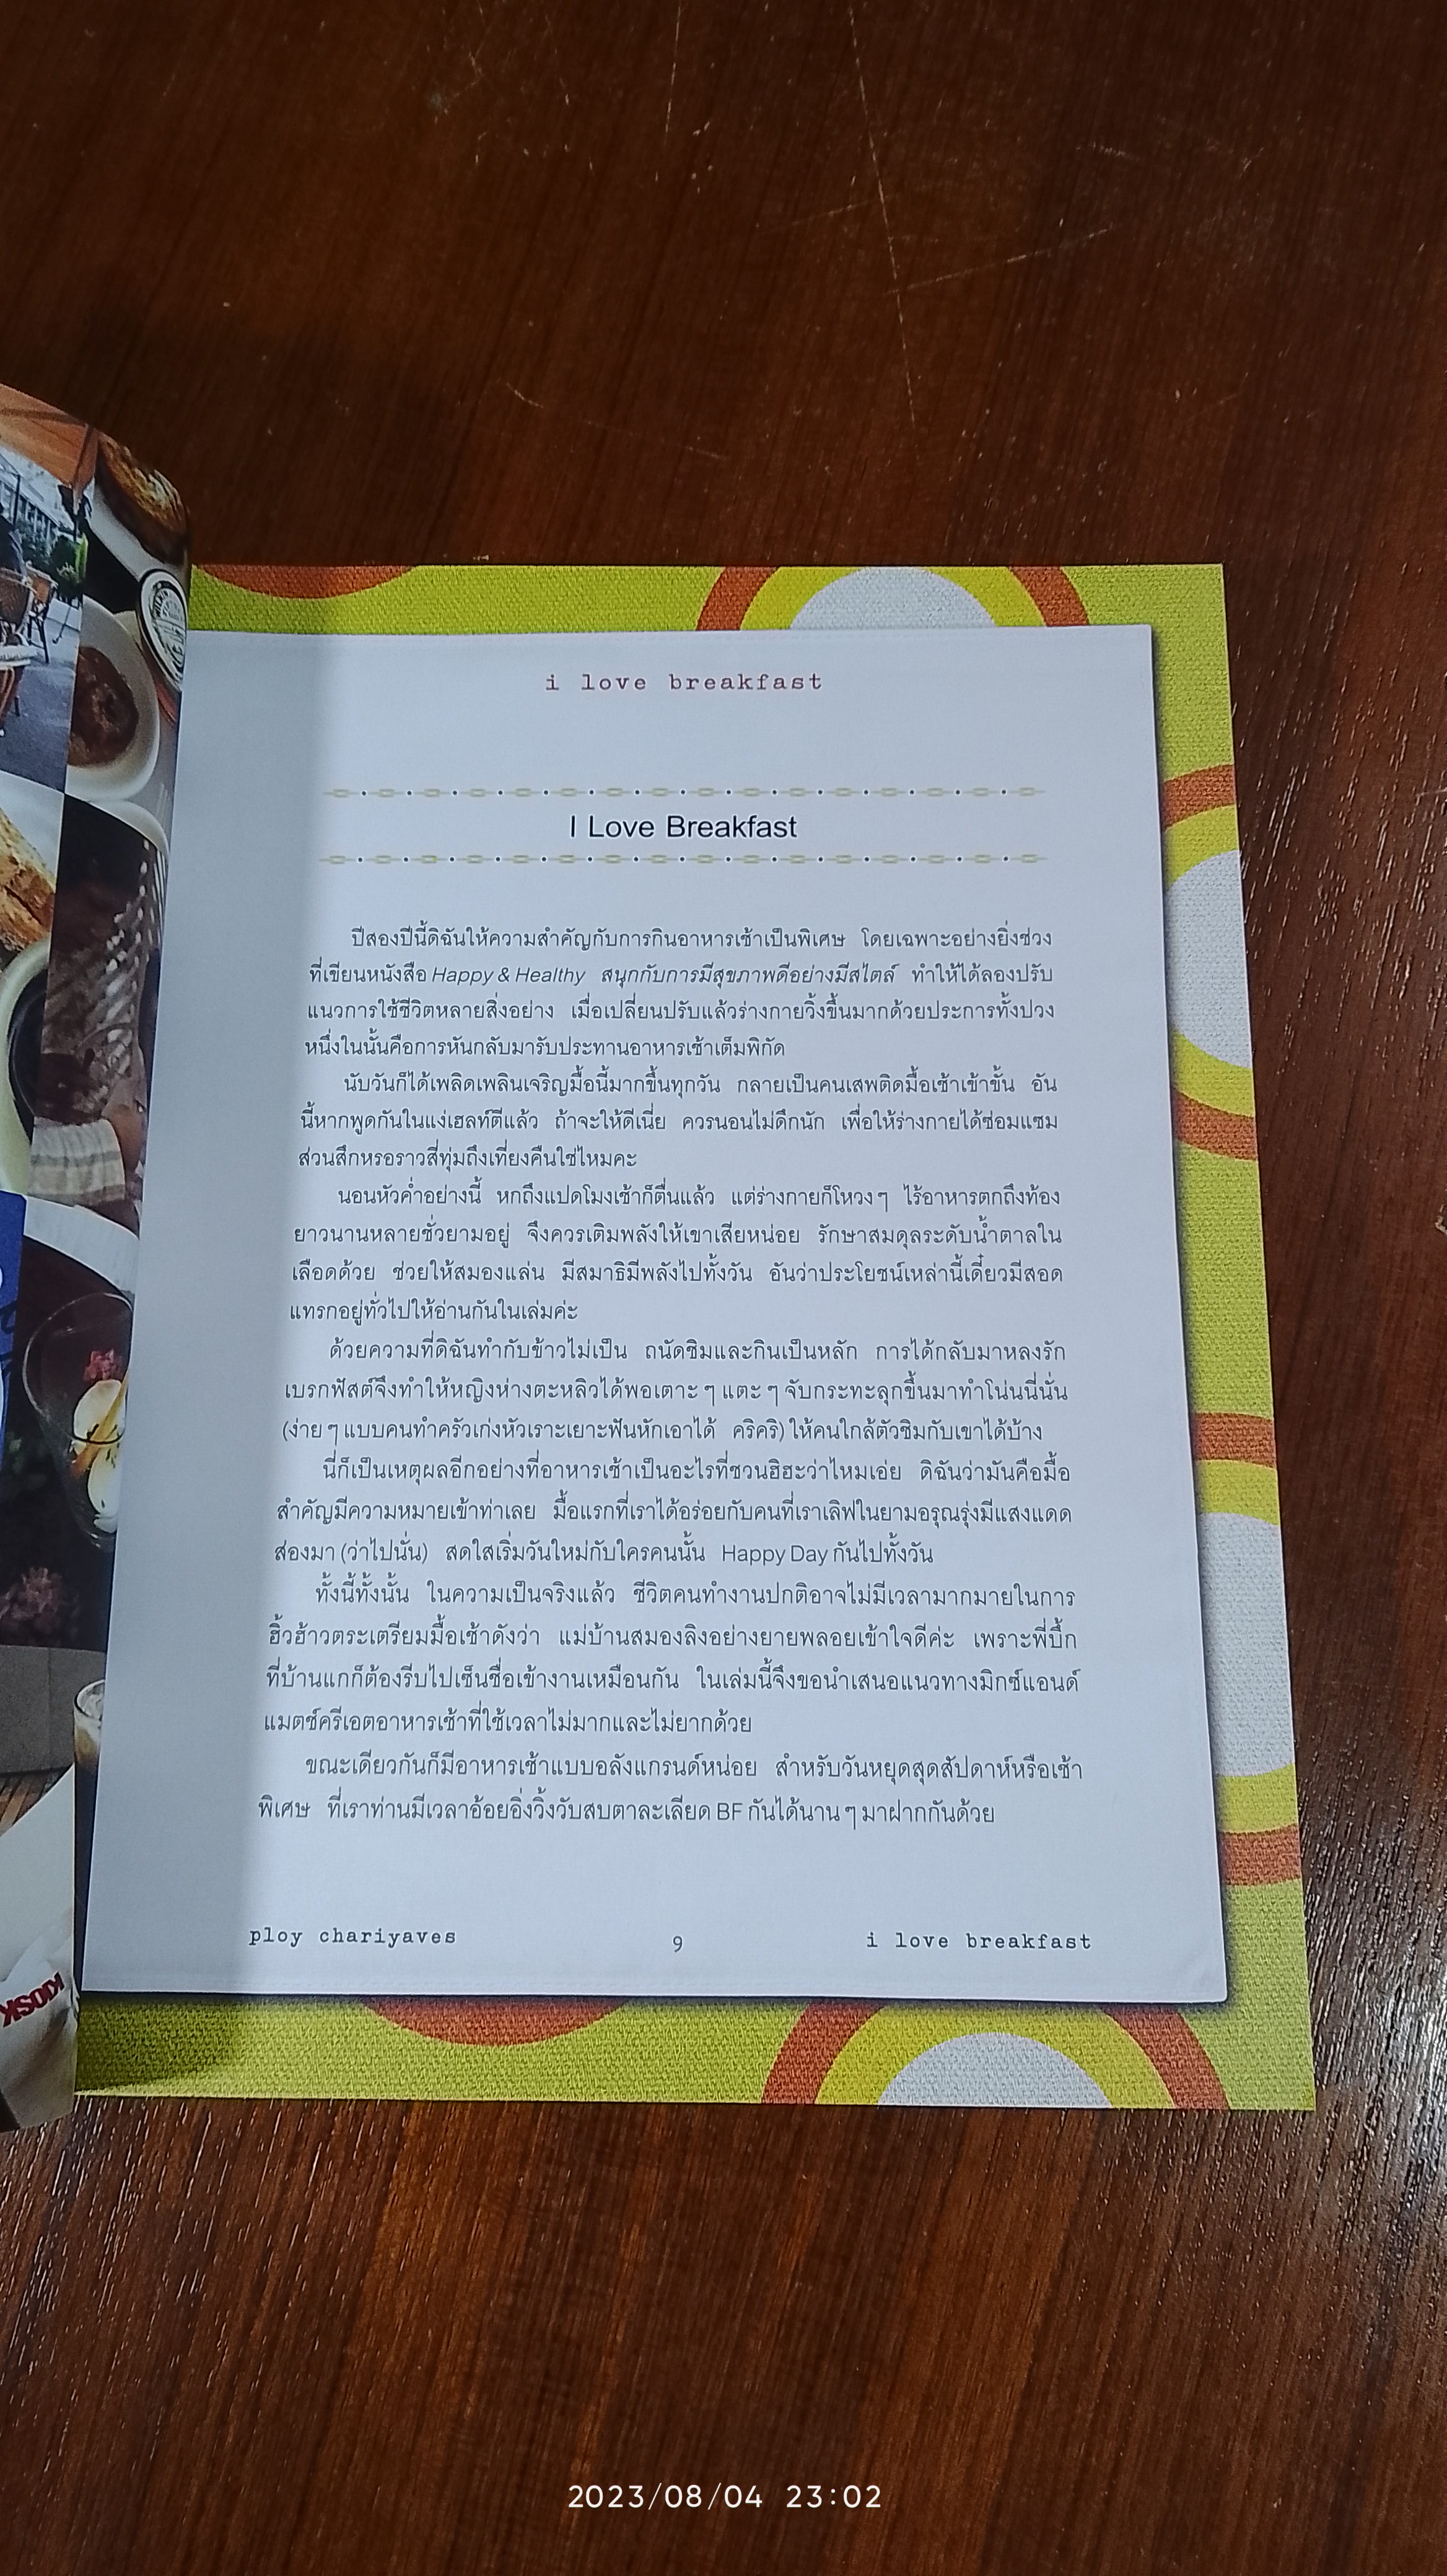 i love breakfast
I Love Breakfast
ปีสองปีนี้ดิฉันให้ความสำคัญกับการกินอาหารเช้าเป็นพิเศษ โดยเฉพาะอย่างยิ่งช่วง
ที่เขียนหนังสือ Happy & Healthy สนุกกับการมีสุขภาพดีอย่างมีสไตล์ ทำให้ได้ลองปรับ
แนวการใช้ชีวิตหลายสิ่งอย่าง เมื่อเปลี่ยนปรับแล้วร่างกายวิ้งขึ้นมากด้วยประการทั้งปวง
หนึ่งในนั้นคือการหันกลับมารับประทานอาหารเช้าเต็มพิกัด
นับวันก็ได้เพลิดเพลินเจริญมื้อนี้มากขึ้นทุกวัน กลายเป็นคนเสพติดมื้อเช้าเข้าขั้น อัน
นี้หากพูดกันในแง่เฮลท์ตีแล้ว ถ้าจะให้ดีเนี่ย ควรนอนไม่ดึกนัก เพื่อให้ร่างกายได้ซ่อมแซม
ส่วนสึกหรอราวสี่ทุ่มถึงเที่ยงคืนใช่ไหมคะ
นอนหัวค่ำอย่างนี้ หกถึงแปดโมงเช้าก็ตื่นแล้ว แต่ร่างกายก็โหวง ๆ ไร้อาหารตกถึงท้อง
ยาวนานหลายชั่วยามอยู่ จึงควรเติมพลังให้เขาเสียหน่อย รักษาสมดุลระดับน้ำตาลใน
เลือดด้วย ช่วยให้สมองแล่น มีสมาธิมีพลังไปทั้งวัน อันว่าประโยชน์เหล่านี้เดี๋ยวมีสอด
แทรกอยู่ทั่วไปให้อ่านกันในเล่มค่ะ
ด้วยความที่ดิฉันทำกับข้าวไม่เป็น ถนัดชิมและกินเป็นหลัก การได้กลับมาหลงรัก
เบรกฟัสต์จึงทำให้หญิงห่างตะหลิวได้พอเตาะ ๆ แตะ ๆ จับกระทะลุกขึ้นมาทำโน่นนี่นั่น
(ง่าย ๆ แบบคนทำครัวเก่งหัวเราะเยาะฟันหักเอาได้ คริคริ) ให้คนใกล้ตัวชิมกับเขาได้บ้าง
นี่ก็เป็นเหตุผลอีกอย่างที่อาหารเช้าเป็นอะไรที่ชวนฮิฮะว่าไหมเอ่ย ดิฉันว่ามันคือมื้อ
สำคัญมีความหมายเข้าท่าเลย มื้อแรกที่เราได้อร่อยกับคนที่เราเลิฟในยามอรุณรุ่งมีแสงแดด
ส่องมา (ว่าไปนั่น) สดใสเริ่มวันใหม่กับใครคนนั้น Happy Day กันไปทั้งวัน
ทั้งนี้ทั้งนั้น ในความเป็นจริงแล้ว ชีวิตคนทำงานปกติอาจไม่มีเวลามากมายในการ
ฮิ้วฮ้าวตระเตรียมมื้อเช้าดังว่า แม่บ้านสมองลิงอย่างยายพลอยเข้าใจดีค่ะ เพราะพี่บึ้ก
ที่บ้านแกก็ต้องรีบไปเซ็นชื่อเข้างานเหมือนกัน ในเล่มนี้จึงขอนำเสนอแนวทางมิกซ์แอนด์
แมตช์ครีเอตอาหารเช้าที่ใช้เวลาไม่มากและไม่ยากด้วย
ขณะเดียวกันก็มีอาหารเช้าแบบอลังแกรนด์หน่อย สำหรับวันหยุดสุดสัปดาห์หรือเช้า
พิเศษ ที่เราท่านมีเวลาอ้อยอิ่งวิ้งวับสบตาละเลียด BF กันได้นาน ๆ มาฝากกันด้วย
ploy chariyaves 9 i love breakfast
KIOSK
2023/08/04 23:02